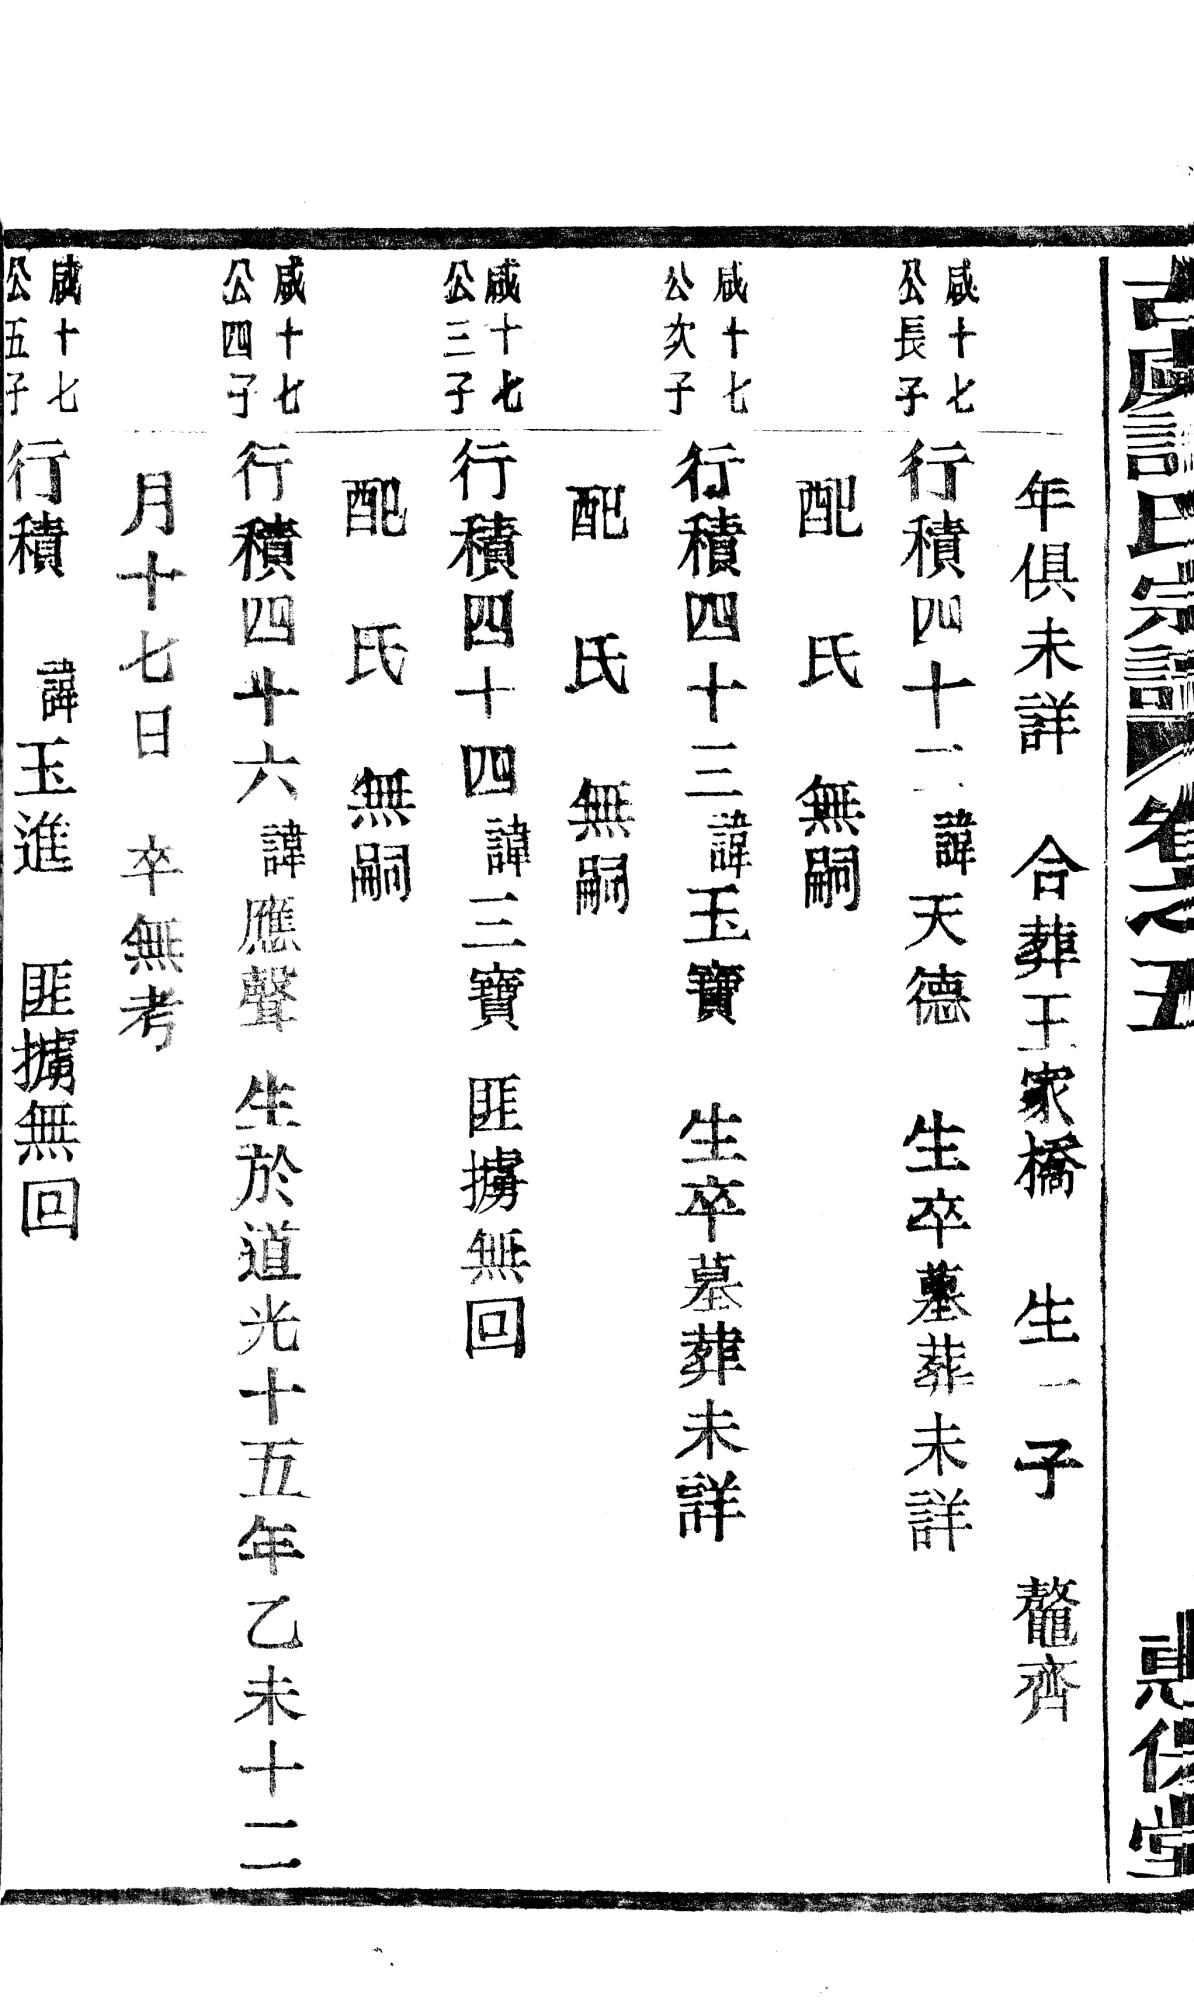 古虞氏宗譜 卷之五 堂
年俱未詳 合葬王家橋 生一子 鰲齊
咸十七
公長子
行積四十二諱天德 生卒墓葬未詳
配 氏 無嗣
咸十七
公次子
行積四十三諱玉寶 生卒墓葬未詳
配 氏 無嗣
咸十七
公三子
行積四十四諱三寶 匪擄無回
配 氏 無嗣
咸十七
公四子
行積四十六諱應聲 生於道光十五年乙未十二
月十七日 卒無考
咸十七
公五子
行積 諱玉進 匪擄無回